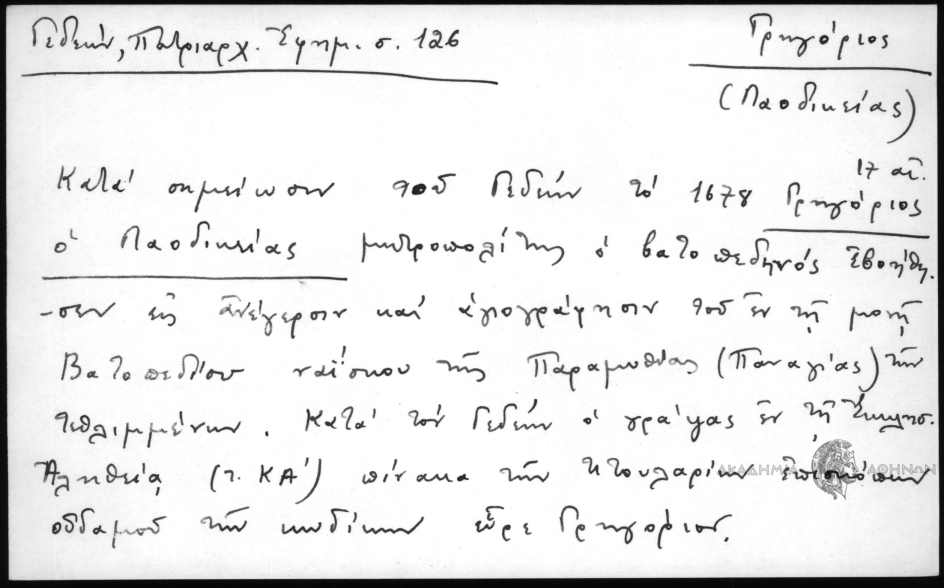 Γεδεών, Πατριαρχ. Ἐφημ. σ. 126
Γρηγόριος
(Λαοδικείας)
17 αἰ.
Κατά σημείωσιν τοῦ Γεδεών τό 1678 Γρηγόριος
ὁ Λαοδικείας μητροπολίτης ὁ βατοπεδηνός ἐβοήθη-
-σεν εἰς ἀνέγερσιν καί ἁγιογράφησιν τοῦ ἐν τῇ μονῇ
Βατοπεδίου ναΐσκου τῆς Παραμυθίας (Παναγίας) τῶν
τεθλιμμένων. Κατά τόν Γεδεών ὁ γράψας ἐν τῇ Ἐκκλησ.
Ἀληθείᾳ (τ. ΚΑ΄) πίνακα τῶν τιτουλαρίων ἐπισκόπων
οὐδαμοῦ τῶν κωδίκων εὗρε Γρηγόριον.
ΑΚΑΔΗΜΙΑ ΑΘΗΝΩΝ